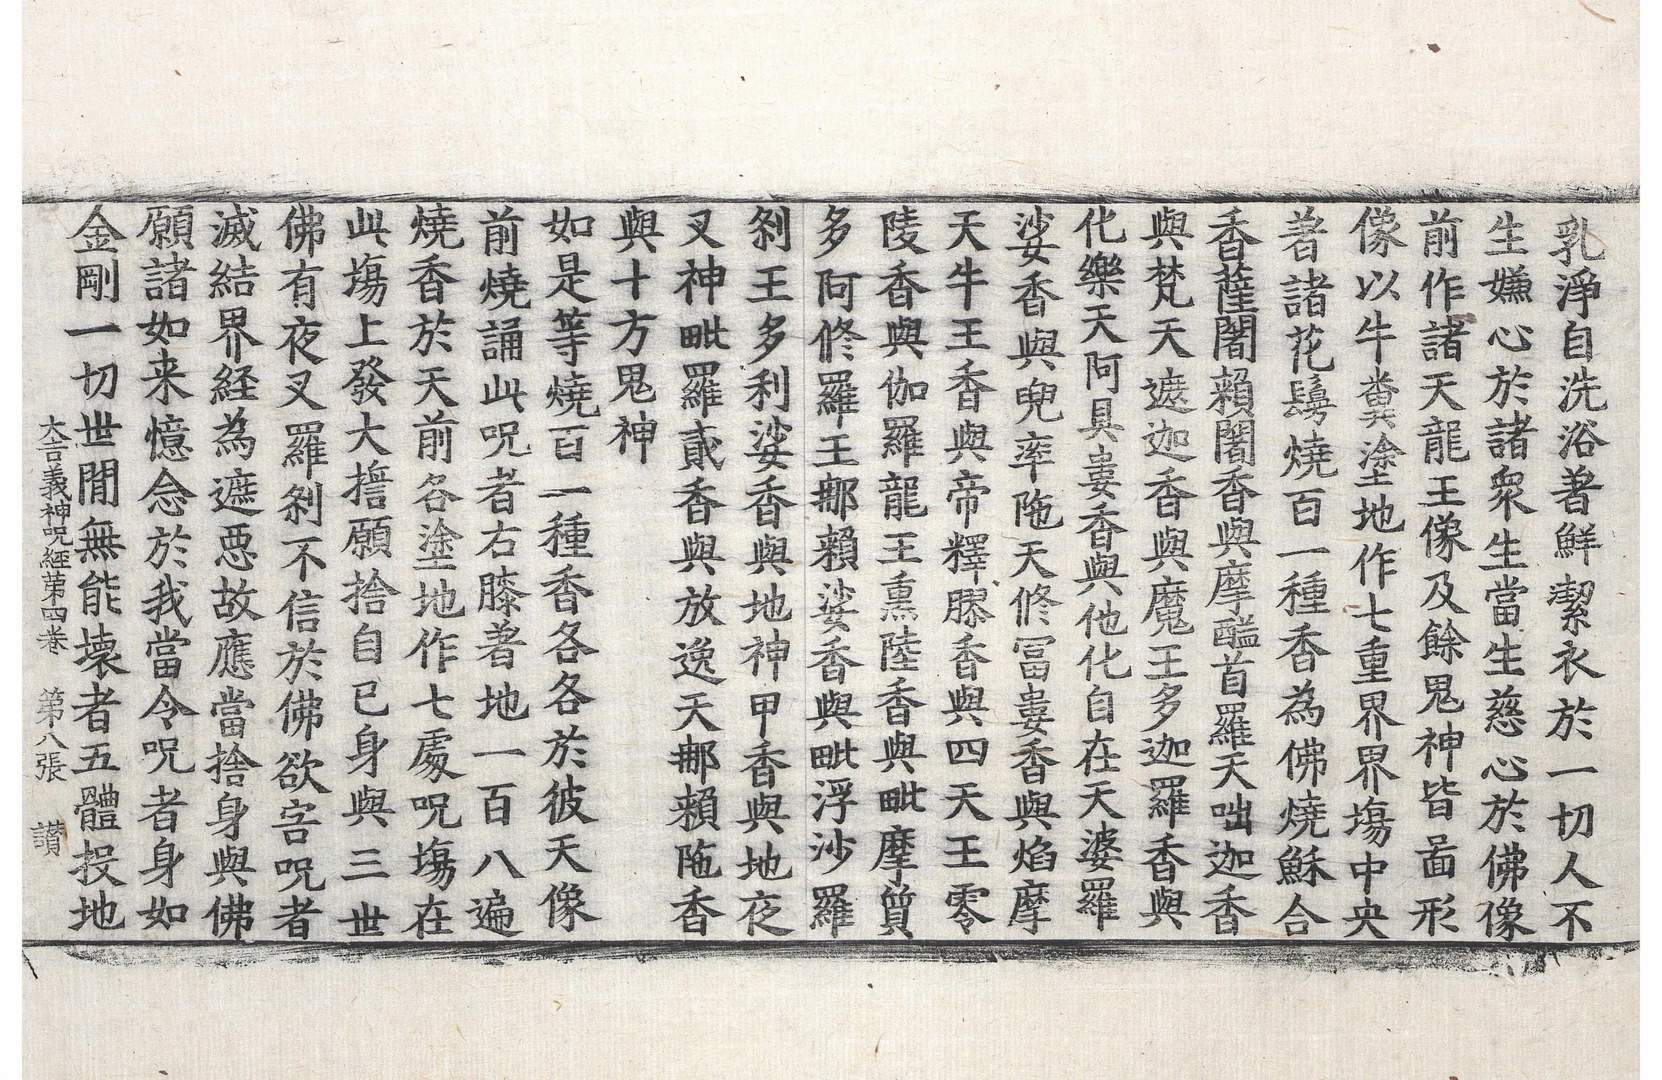 乳淨自洗浴著鮮潔衣於一切人不
生嫌心於諸衆生當生慈心於佛像
前作諸天龍王像及餘鬼神皆畵形
像以牛糞塗地作七重界界塲中央
著諸花鬘燒百一種香為佛燒穌合
香薩闍賴闍香與摩醯首羅天咄迦香
與梵天遮迦香與魔王多迦羅香與
化樂天阿具婁香與他化自在天婆羅
娑香與兜率陁天修冨婁香與焰摩
天牛王香與帝釋膠香與四天王零
陵香與伽羅龍王熏陸香與毗摩質
多阿修羅王䣑賴娑香與毗浮沙羅
剎王多利娑香與地神甲香與地夜
叉神毗羅貳香與放逸天䣑賴陁香
與十方鬼神
如是等燒百一種香各各於彼天像
前燒誦此呪者右膝著地一百八遍
燒香於天前各塗地作七處呪塲在
此塲上發大擔願捨自已身與三世
佛有夜叉羅剎不信於佛欲害呪者
滅結界経為遮惡故應當捨身與佛
願諸如来憶念於我當令呪者身如
金剛一切世閒無能壞者五體投地
大吉義神呪經第四卷　第八張　讃